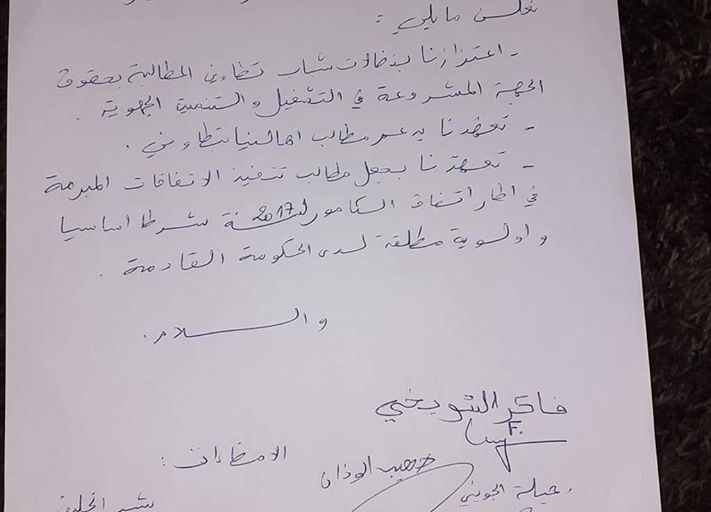 نعلن ما يلي :
- اعتزازنا بنضالات شباب تطاوين المطالبة بحقوق
الجهة المشروعة في التشغيل و التنمية الجهوية .
- تعهدنا بدعم مطالب اهالينا بتطاوين .
- تعهدنا بجعل مطالب تنفيذ الاتفاقات المبرمة
في اطار اتفاق الكامور لسنة 2017 شرطا اساسيا
و اولوية مطلقة لدى الحكومة القادمة .
و الســـلام .
فاكر الشويخي
الامضاءات :
حبيب الوذان
جميلة الجويني